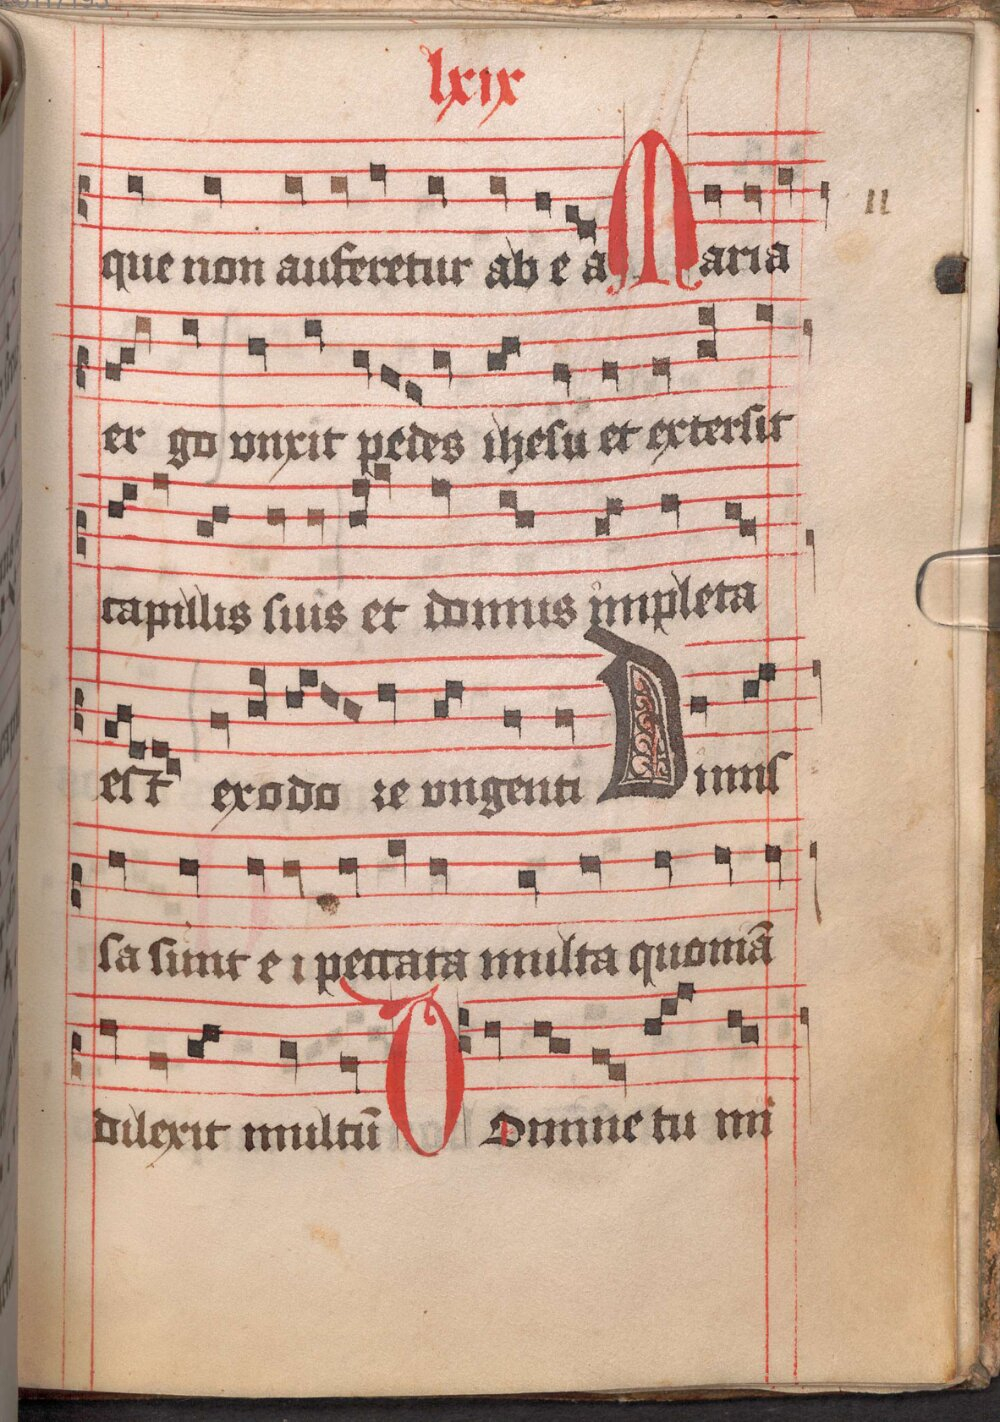 lxix
que non auferetur ab e a Maria
11
er go vnxit pedes ihesu et extersit
capillis suis et domus impleta
est exodo re vngenti Dimis
sa sunt e i peccata multa quoniā
dilexit multū O Domine tu mi